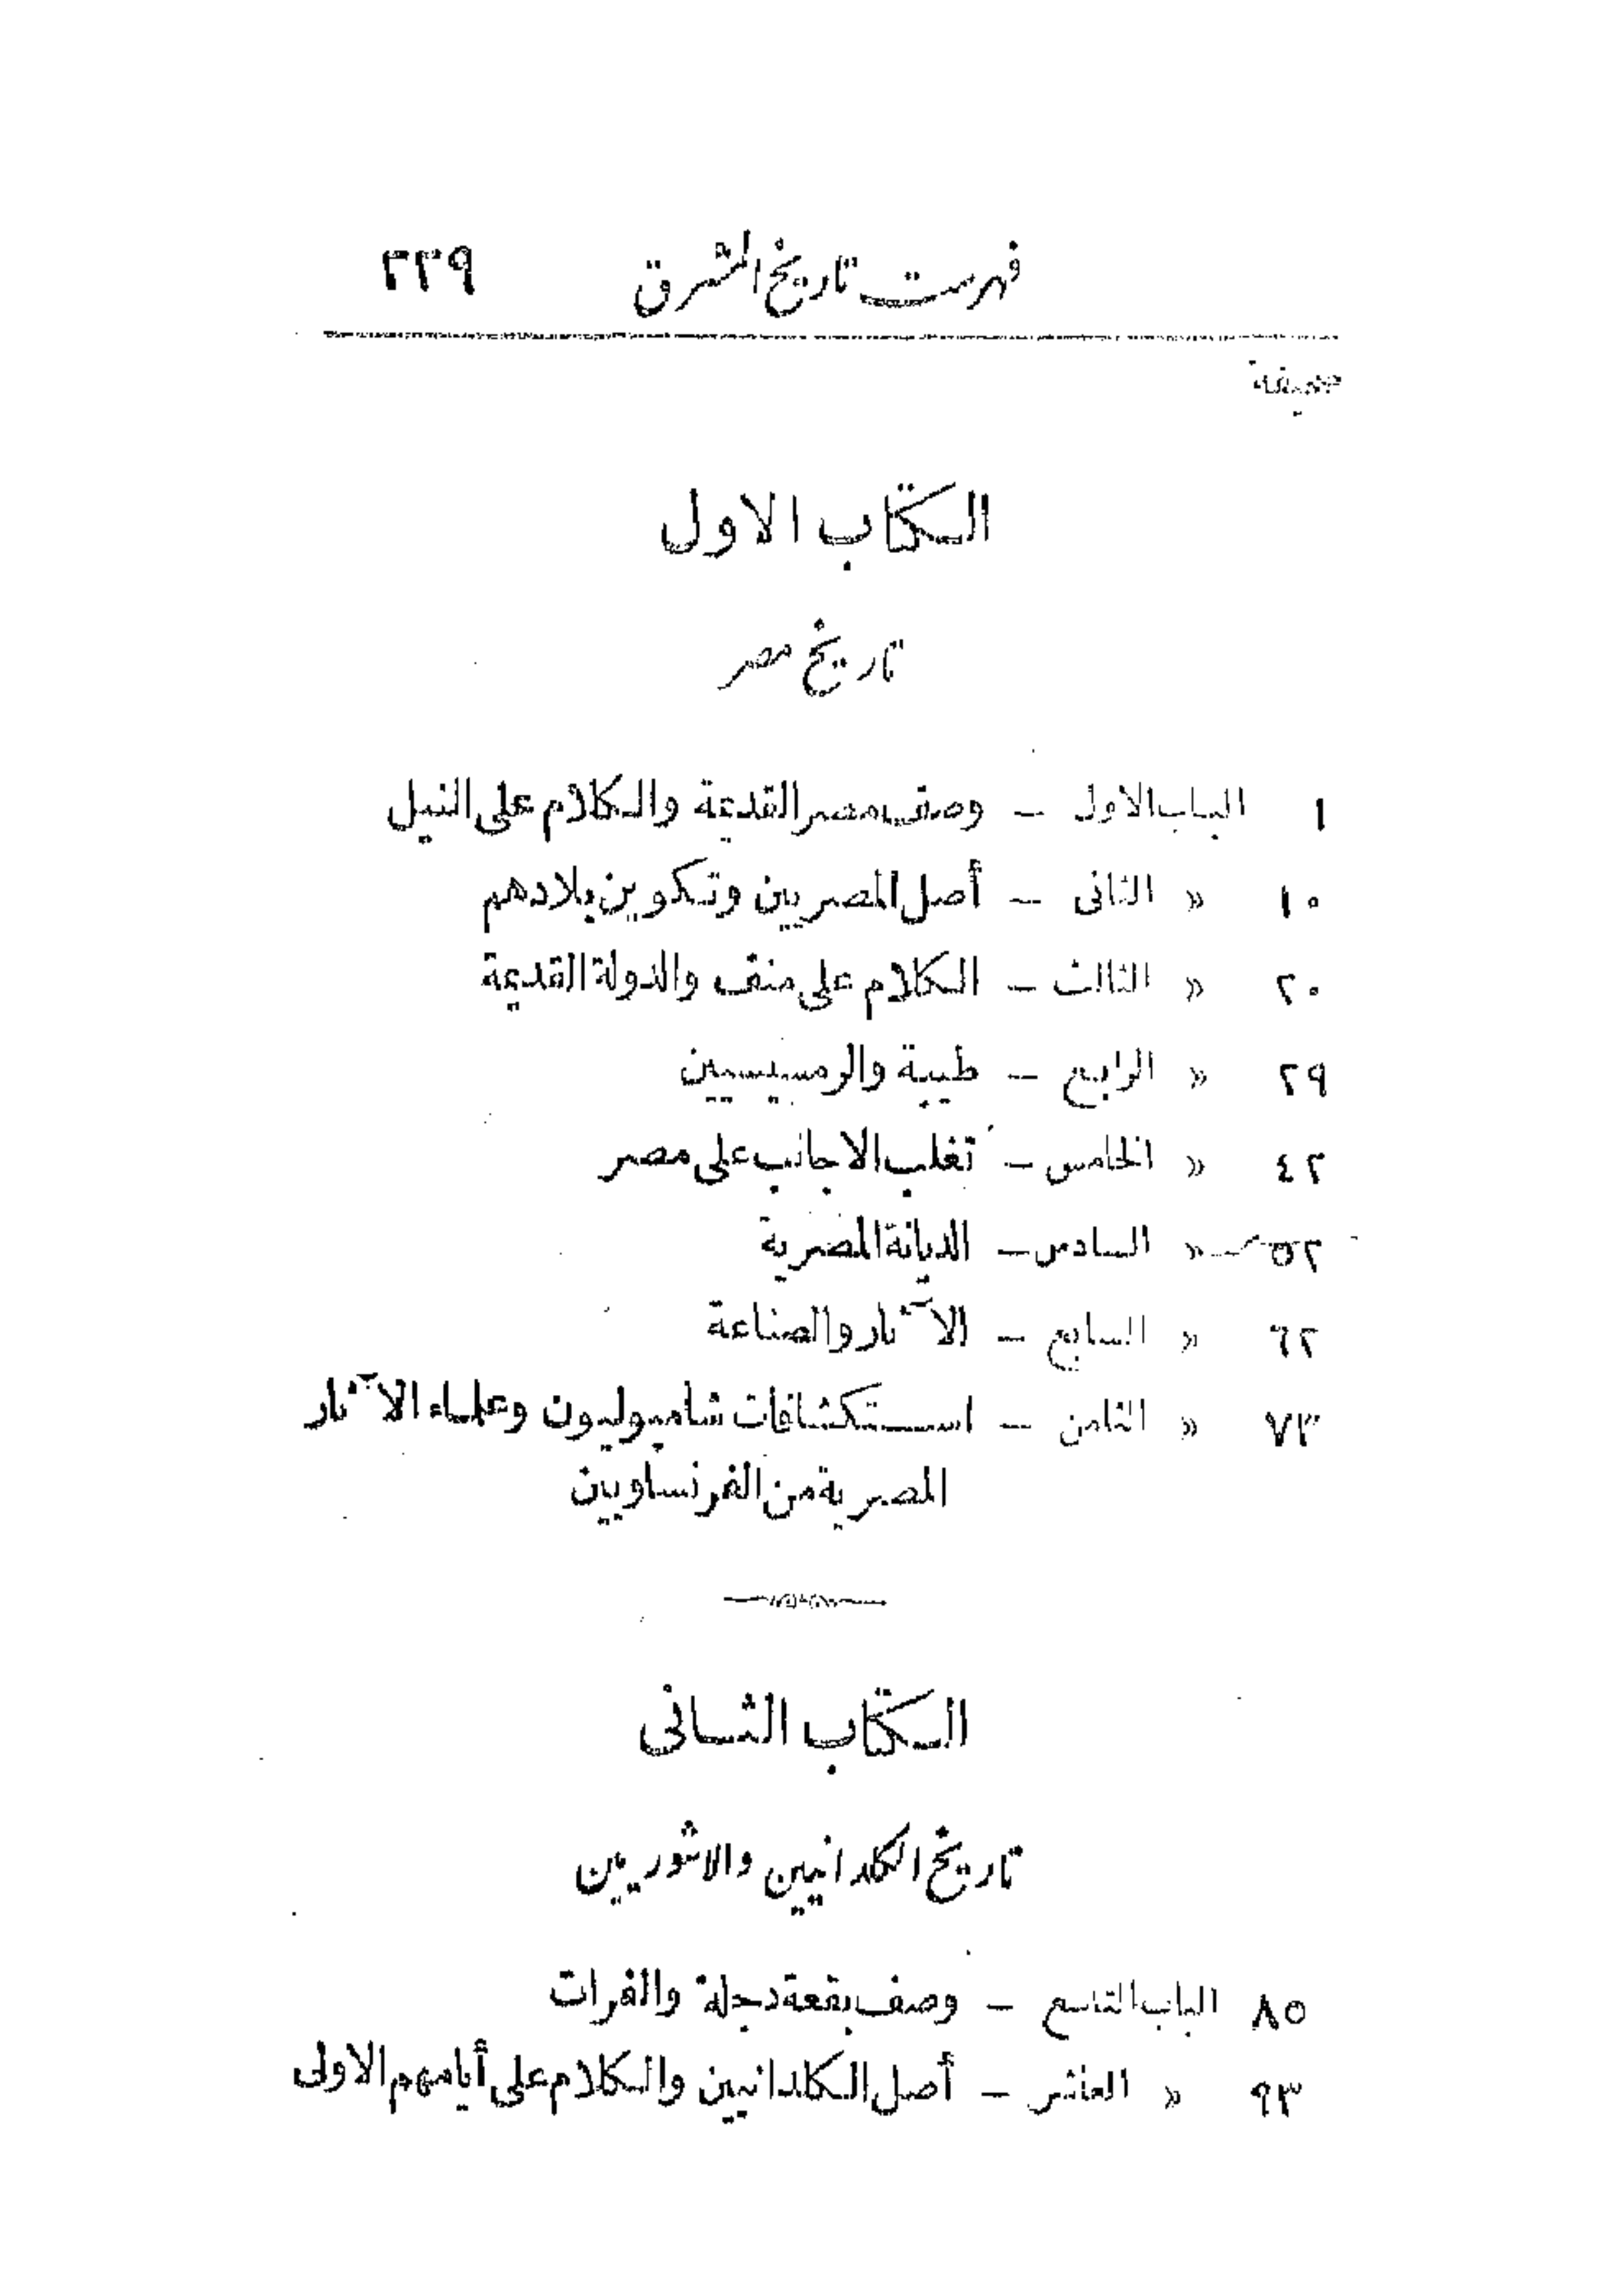 فهرست تاريخ المشرق ٣٣٩
صحيفة
الكتاب الاول
تاريخ مصر
١ الباب الاول — وصف مصر القديمة والكلام على النيل
١٠ » الثانى — أصل المصريين وتكوين بلادهم
٢٠ » الثالث — الكلام على منف والدولة القديمة
٢٩ » الرابع — طيبة والرمسيسيين
٤٢ » الخامس — تغلب الاجانب على مصر
٥٢ » السادس — الديانة المصرية
٦٢ » السابع — الآثار والصناعة
٧٣ » الثامن — استكشافات شامبوليون وعلماء الآثار
المصرية من الفرنساويين
الكتاب الثانى
تاريخ الكلدانيين والاشوريين
٨٥ الباب التاسع — وصف بقعة دجلة والفرات
٩٣ » العاشر — أصل الكلدانيين والكلام على أيامهم الاولى